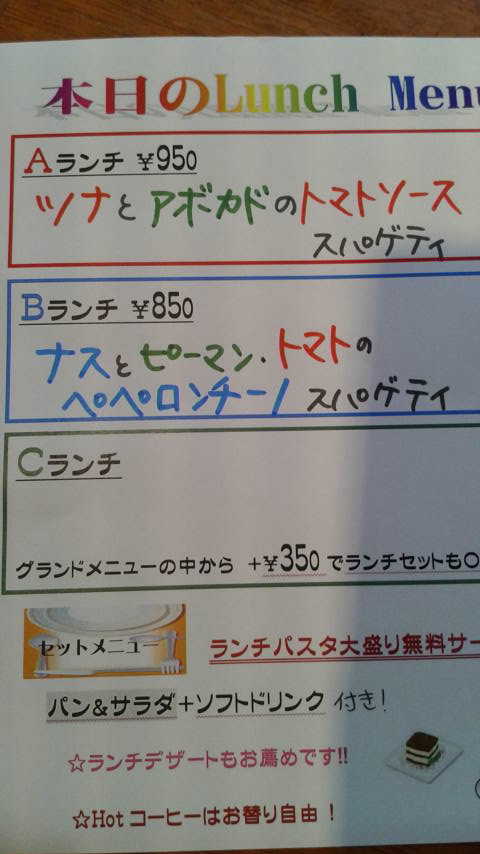 本日のLunch Menu
Aランチ ¥950
ツナとアボカドのトマトソース
スパゲティ
Bランチ ¥850
ナスとピーマン・トマトの
ペペロンチーノ スパゲティ
Cランチ
グランドメニューの中から +¥350でランチセットも〇
セットメニュー
ランチパスタ大盛り無料サー
パン&サラダ+ソフトドリンク 付き!
☆ランチデザートもお薦めです!!
☆Hot コーヒーはお替り自由!